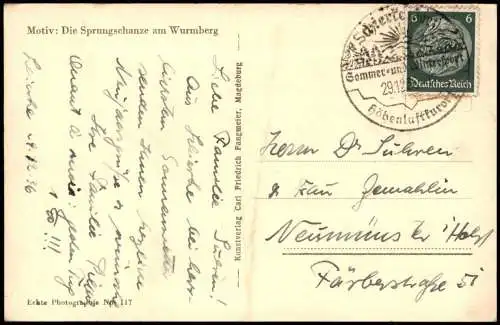 Motiv: Die Sprungschanze am Wurmberg
Liebe Familie Suhren!
Aus Schierke bei herr-
lichstem Sonnenwetter
senden Ihnen herzliche
Neujahrsgrüße u. wünsche
Ihre Familie
Kunstverlag Carl Friedrich Fangmeier, Magdeburg
Echte Photographie Nr. 117
Schierke
Sommer- und Wintersport
29.12
Höhenluftkurort
6 6
Deutsches Reich
Herrn Dr Suhren
& Frau Gemahlin
Neumünster i/Holst
Färberstraße 51